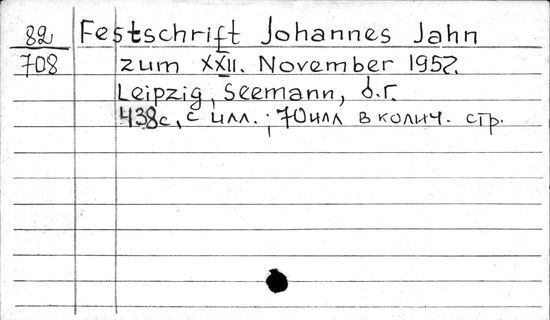 82 Festschrift Johannes Jahn
708 zum XXII. November 1957.
Leipzig, Seemann, б.г.
438с., с илл.; 70 илл в колич. стр.